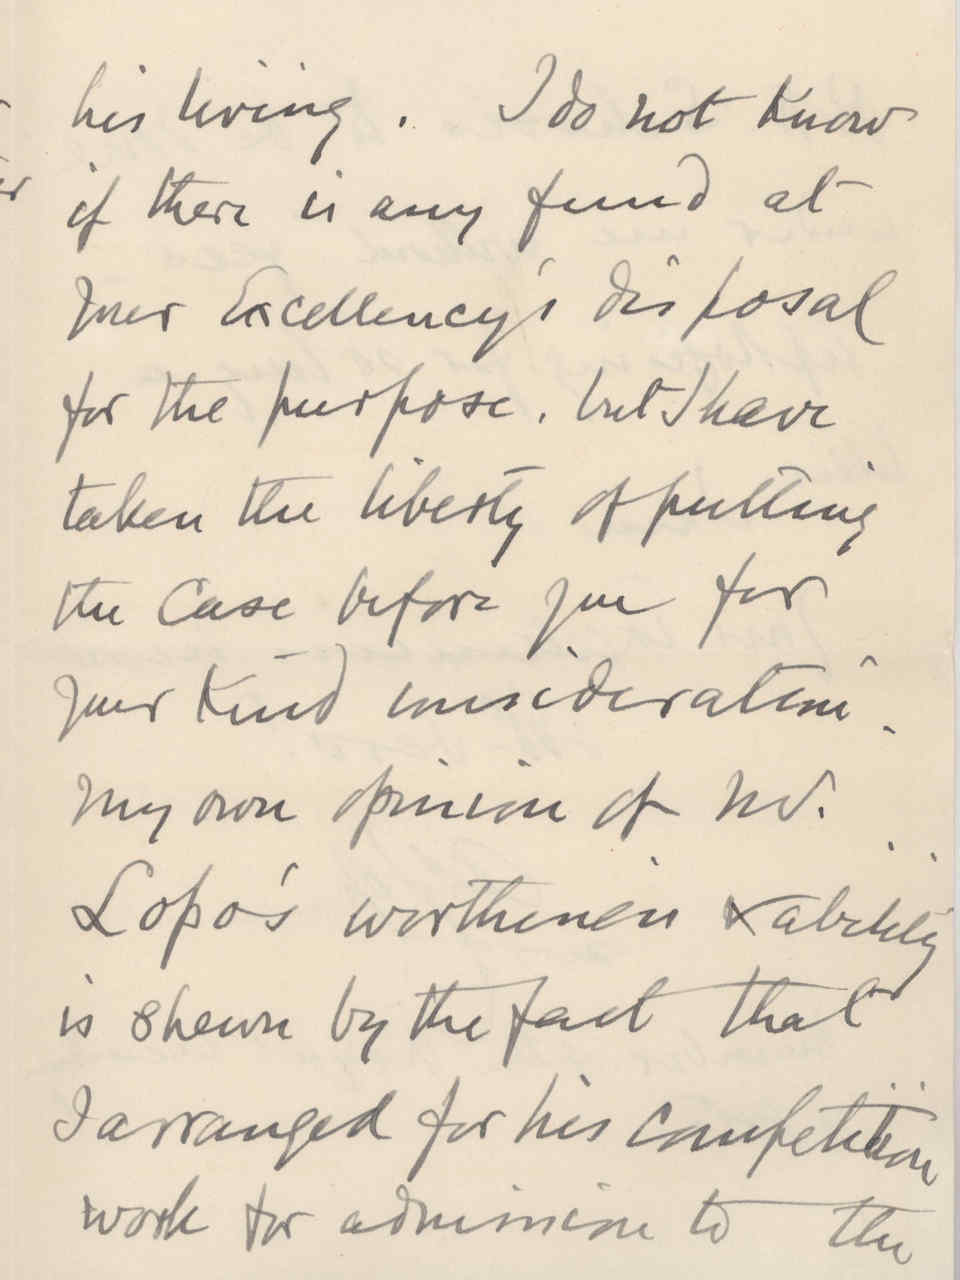 his living. I do not know
if there is any fund at
your Excellency's disposal
for the purpose, but I have
taken the liberty of putting
the case before you for
your kind consideration.
My own opinion of Mr.
Lopo's worthiness & ability
is shewn by the fact that
I arranged for his competition
work for admission to the